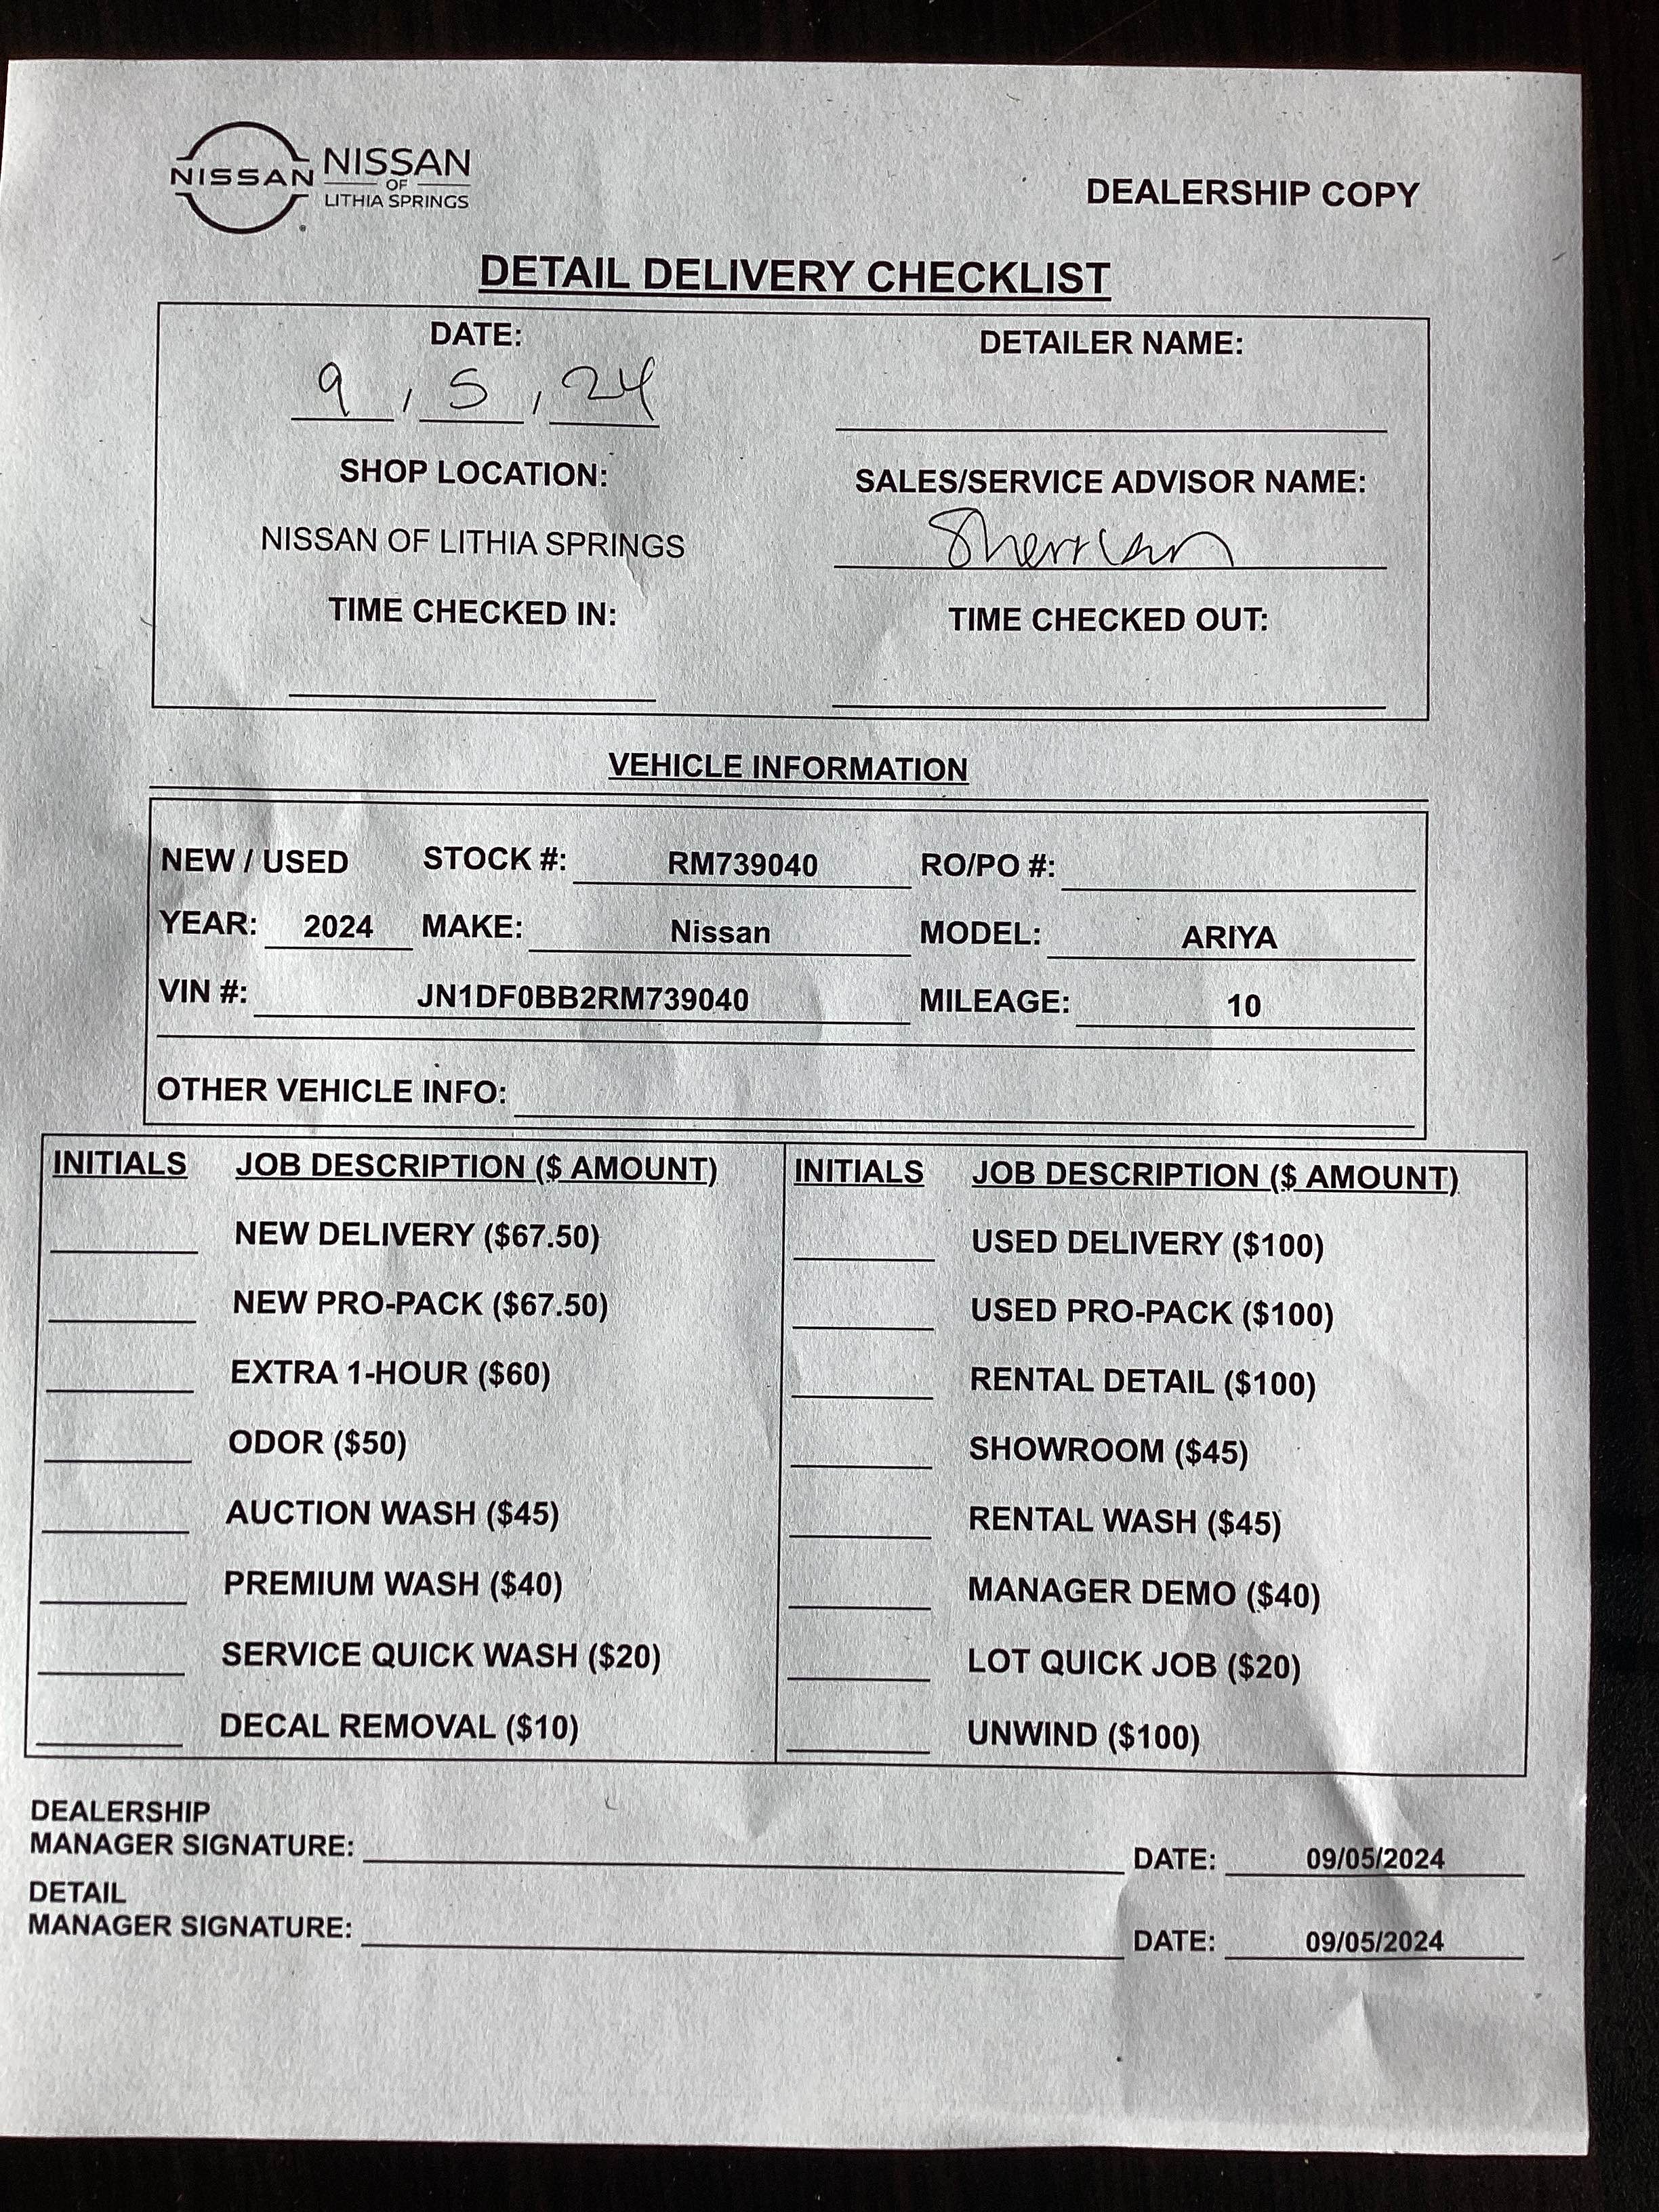 NISSAN
NISSAN
OF
LITHIA SPRINGS
DEALERSHIP COPY
DETAIL DELIVERY CHECKLIST
DATE: DETAILER NAME:
9 / 5 / 24
SHOP LOCATION: SALES/SERVICE ADVISOR NAME:
NISSAN OF LITHIA SPRINGS
TIME CHECKED IN: TIME CHECKED OUT:
VEHICLE INFORMATION
NEW / USED STOCK #: RM739040 RO/PO #:
YEAR: 2024 MAKE: Nissan MODEL: ARIYA
VIN #: JN1DF0BB2RM739040 MILEAGE: 10
OTHER VEHICLE INFO:
INITIALS JOB DESCRIPTION ($ AMOUNT) INITIALS JOB DESCRIPTION ($ AMOUNT)
NEW DELIVERY ($67.50) USED DELIVERY ($100)
NEW PRO-PACK ($67.50) USED PRO-PACK ($100)
EXTRA 1-HOUR ($60) RENTAL DETAIL ($100)
ODOR ($50) SHOWROOM ($45)
AUCTION WASH ($45) RENTAL WASH ($45)
PREMIUM WASH ($40) MANAGER DEMO ($40)
SERVICE QUICK WASH ($20) LOT QUICK JOB ($20)
DECAL REMOVAL ($10) UNWIND ($100)
DEALERSHIP
MANAGER SIGNATURE: DATE: 09/05/2024
DETAIL
MANAGER SIGNATURE: DATE: 09/05/2024